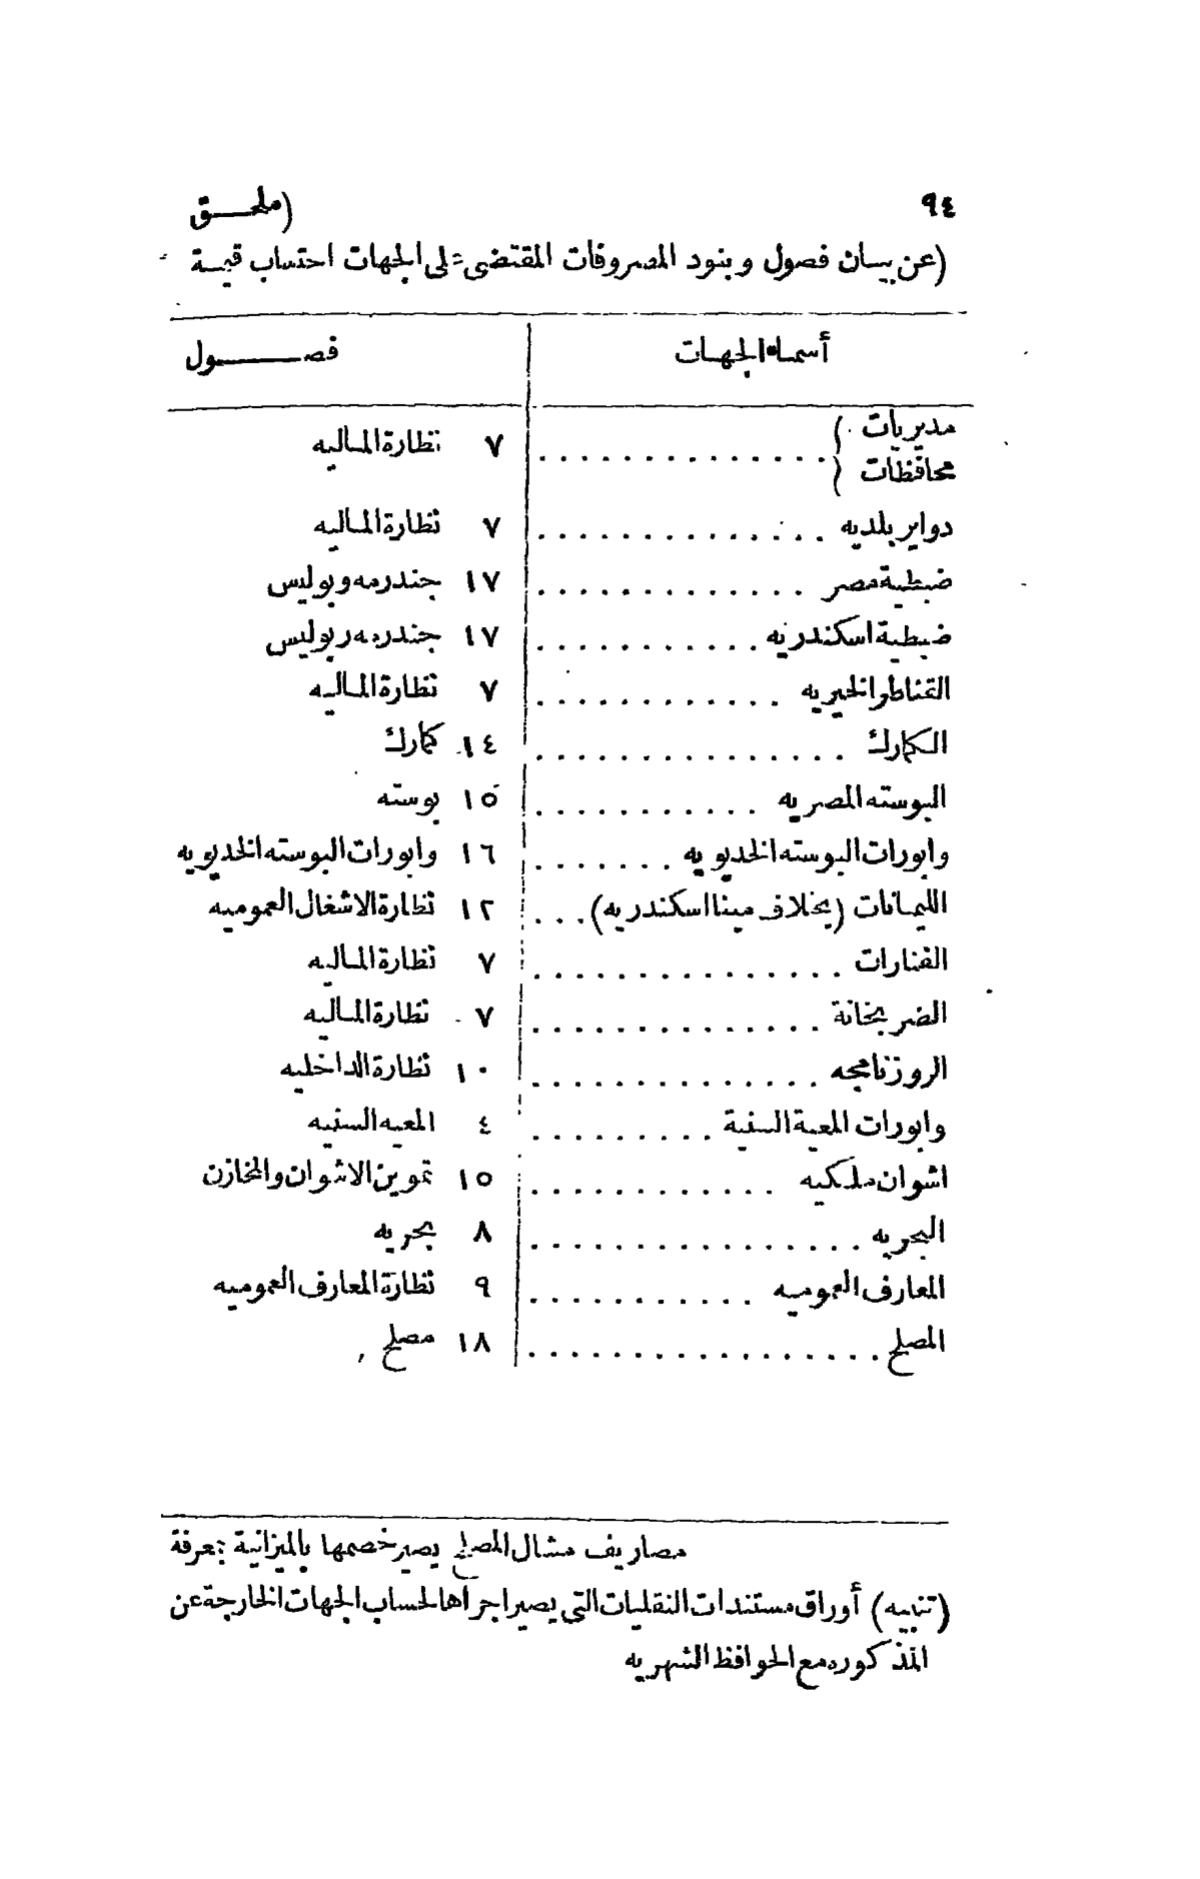 ٩٤ (ملحق
(عن بيسان فصول وبنود المصروفات المقتضى على الجهات احتساب قيمة
أسماء الجهات فصول
مديريات
محافظات ٧ نظارة الماليه
دواير بلديه ٧ نظارة الماليه
ضبطية مصر ١٧ جندرمه وبوليس
ضبطية اسكندريه ١٧ جندرمه وبوليس
القناطر الخيريه ٧ نظارة الماليه
الكمارك ١٤ كمارك
البوسته المصريه ١٥ بوسته
وابورات البوسته الخديويه ١٦ وابورات البوسته الخديويه
الليمانات (بخلاف مينا اسكندريه) ١٢ نظارة الاشغال العموميه
الفنارات ٧ نظارة الماليه
الضربخانة ٧ نظارة الماليه
الروزنامجه ١٠ نظارة الداخليه
وابورات المعية السنية ٤ المعيه السنيه
اشوان ملكيه ١٥ تموين الاشوان والمخازن
البحريه ٨ بحريه
المعارف العموميه ٩ نظارة المعارف العموميه
المصلح ١٨ مصلح
مصاريف مشال المصلح يصير خصمها بالميزانية بمعرفة
(تنبيه) أوراق مستندات النقليات التي يصير اجراها لحساب الجهات الخارجة عن
المذكوره مع الحوافظ الشهريه